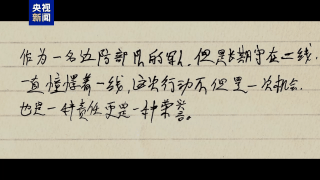 央视新闻
作为一名边防部队的军人,但是长期守在二线.
一直憧憬着一线,这次行动不但是一次机会.
也是一种责任更是一种荣誉。